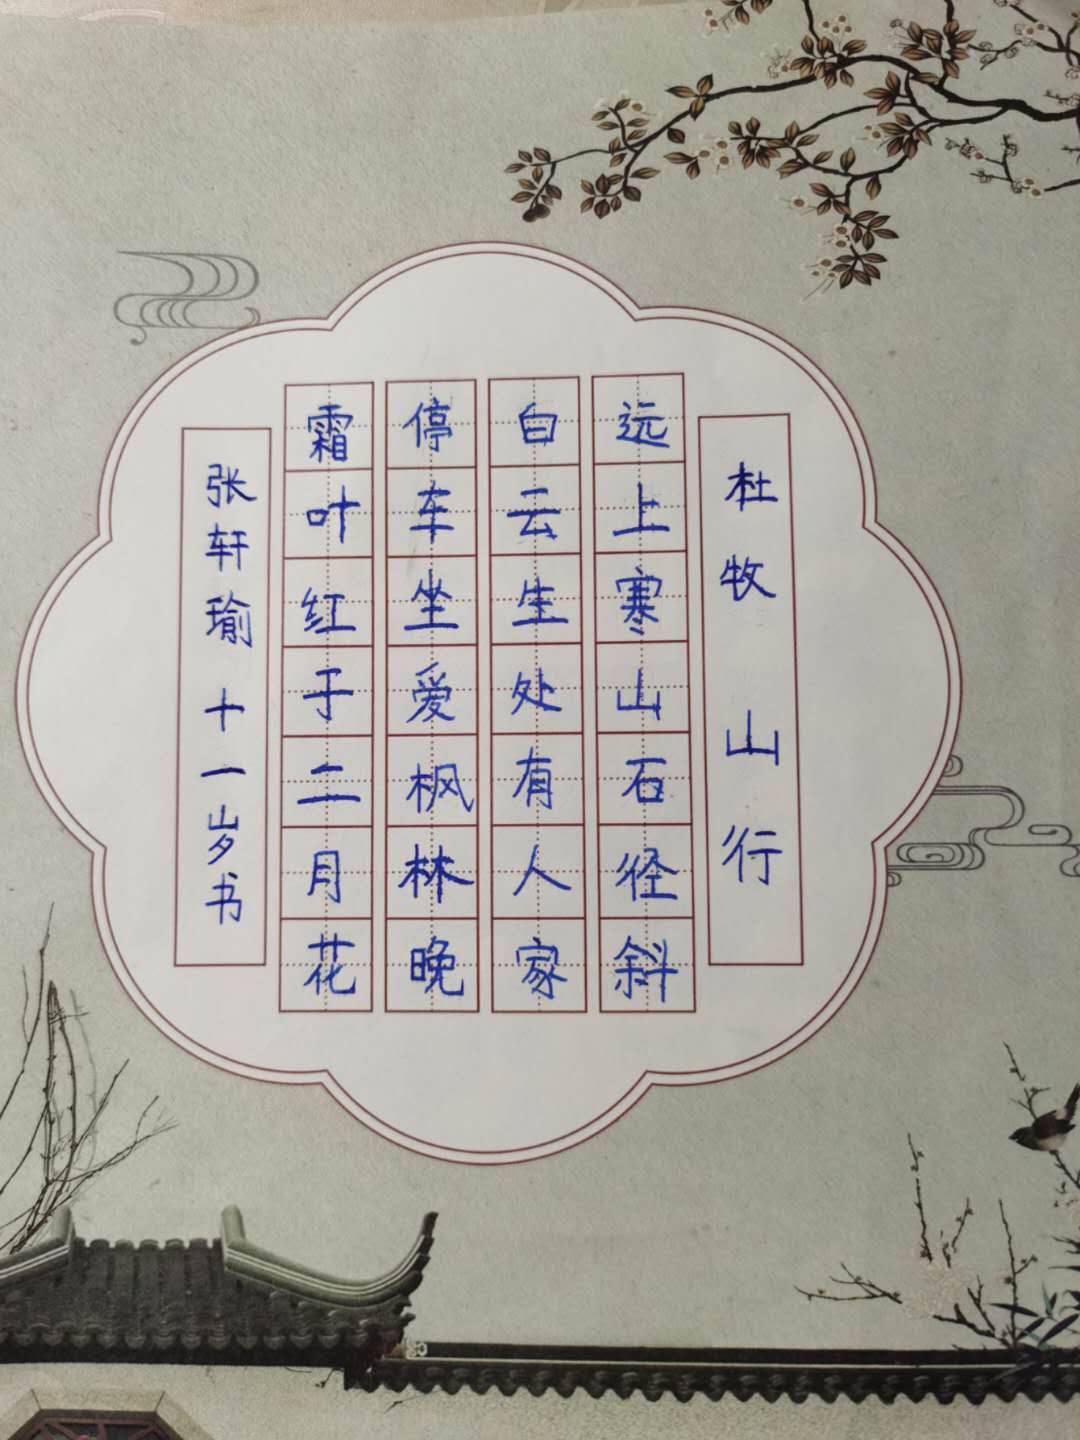 杜牧 山行
远上寒山石径斜
白云生处有人家
停车坐爱枫林晚
霜叶红于二月花
张轩瑜 十一岁书